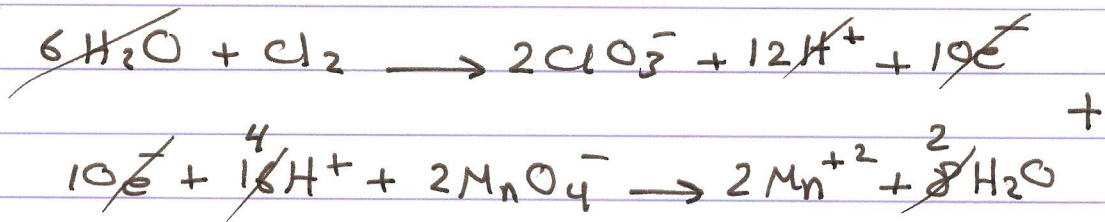 6H₂O + Cl₂ → 2ClO₃⁻ + 12H⁺ + 10e⁻
+
10e⁻ + 16 4 H⁺ + 2MnO₄⁻ → 2Mn⁺² + 8 2 H₂O